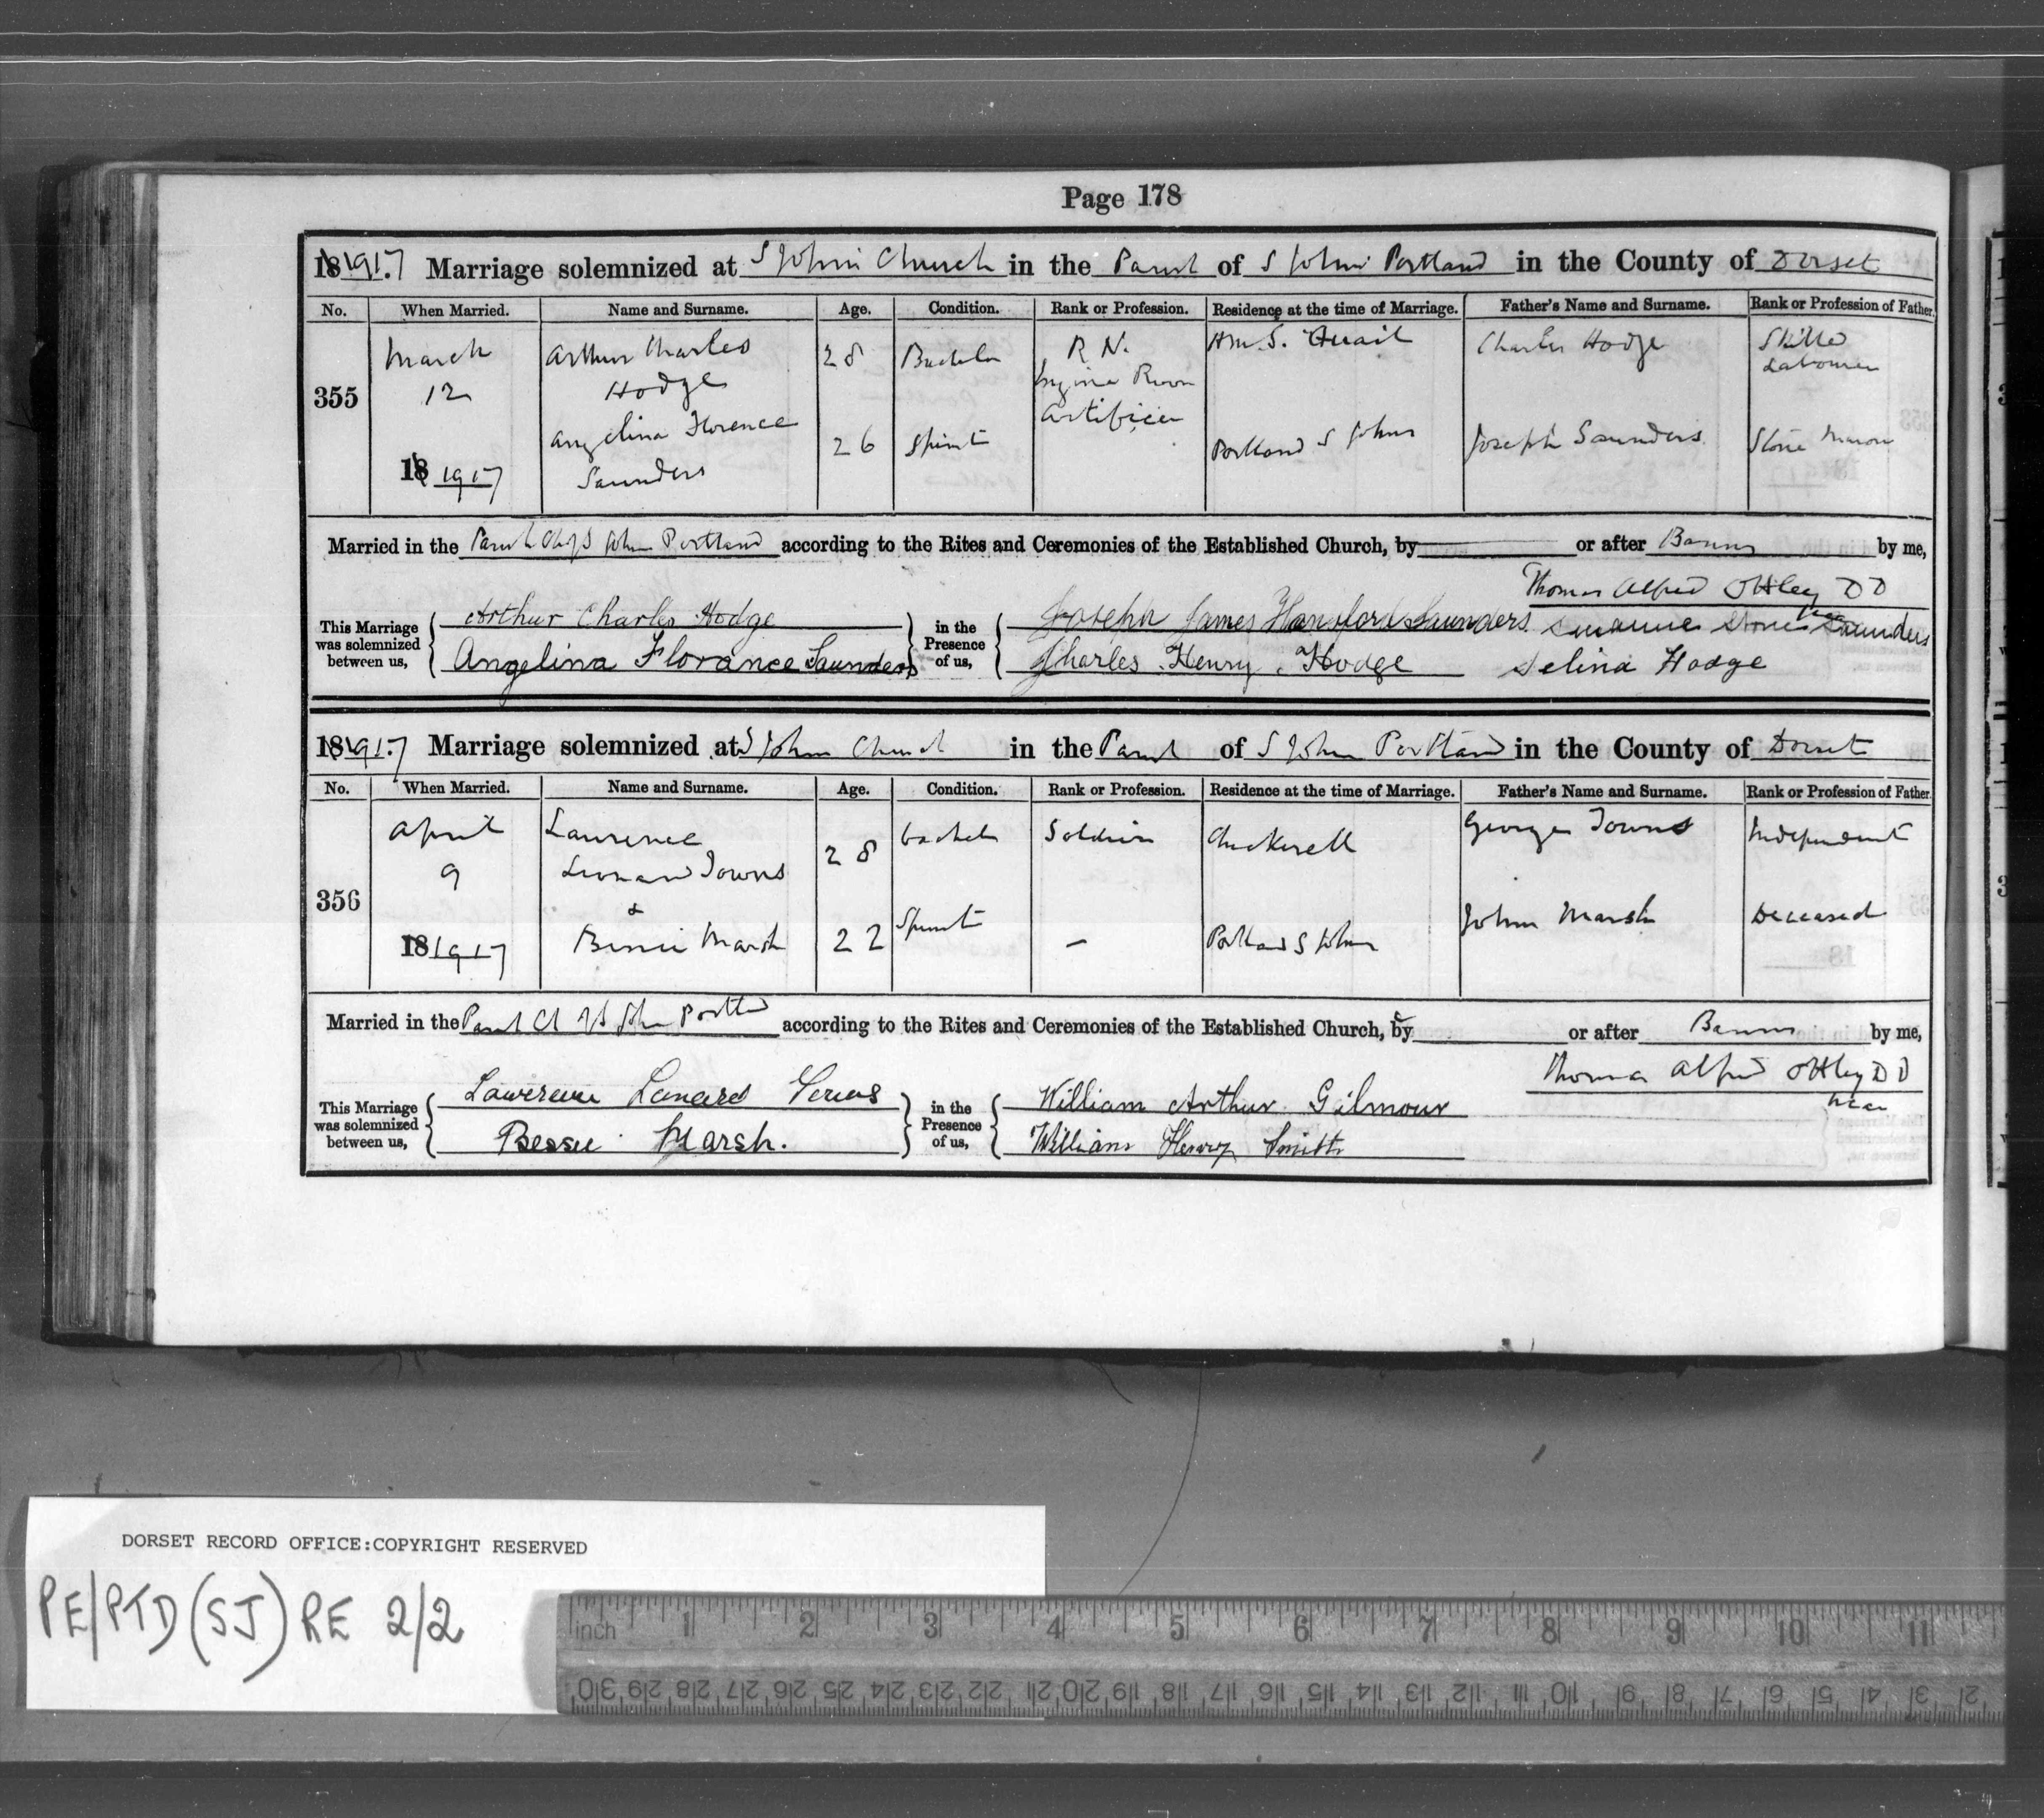 Page 178
18 1917 Marriage solemnized at S John Church in the Parish of S John Portland in the County of Dorset
No. When Married. Name and Surname. Age. Condition. Rank or Profession. Residence at the time of Marriage. Father's Name and Surname. Rank or Profession of Father.
355 March 12 18 1917 Arthur Charles Hodge 28 Bachelor R N. Engine Room Artificer H.M.S. Quail Charles Hodge Skilled Labourer
Angelina Florence Saunders 26 Spinst Portland S Johns Joseph Saunders Stone Mason
Married in the Parish Ch of S John Portland according to the Rites and Ceremonies of the Established Church, by or after Banns by me,
Thomas Alfred Ottley DD
Vicar
This Marriage was solemnized between us, Arthur Charles Hodge in the Presence of us, Joseph James Hansford Saunders Saunders
Angelina Florance Saunders Charles Henry Hodge Selina Hodge
18 1917 Marriage solemnized at S John Church in the Parish of S John Portland in the County of Dorset
No. When Married. Name and Surname. Age. Condition. Rank or Profession. Residence at the time of Marriage. Father's Name and Surname. Rank or Profession of Father.
356 April 9 18 1917 Laurence Leonard Towns 28 Bachel Soldier Chickerell George Towns Independent
& Bessie Marsh 22 Spinst – Portland S John John Marsh Deceased
Married in the Parish Ch of S John Portld according to the Rites and Ceremonies of the Established Church, by or after Banns by me,
Thomas Alfred Ottley DD
Vicar
This Marriage was solemnized between us, Lanard in the Presence of us, William Arthur Gilmour
Bessie Marsh. William Henry Smith
DORSET RECORD OFFICE:COPYRIGHT RESERVED
PE/PTD(SJ) RE 2/2
inch 1 2 3 4 5 6 7 8 9 10 11
30 29 28 27 26 25 24 23 22 21 20 19 18 17 16 15 14 13 12 11 10 9 8 7 6 5 4 3 2